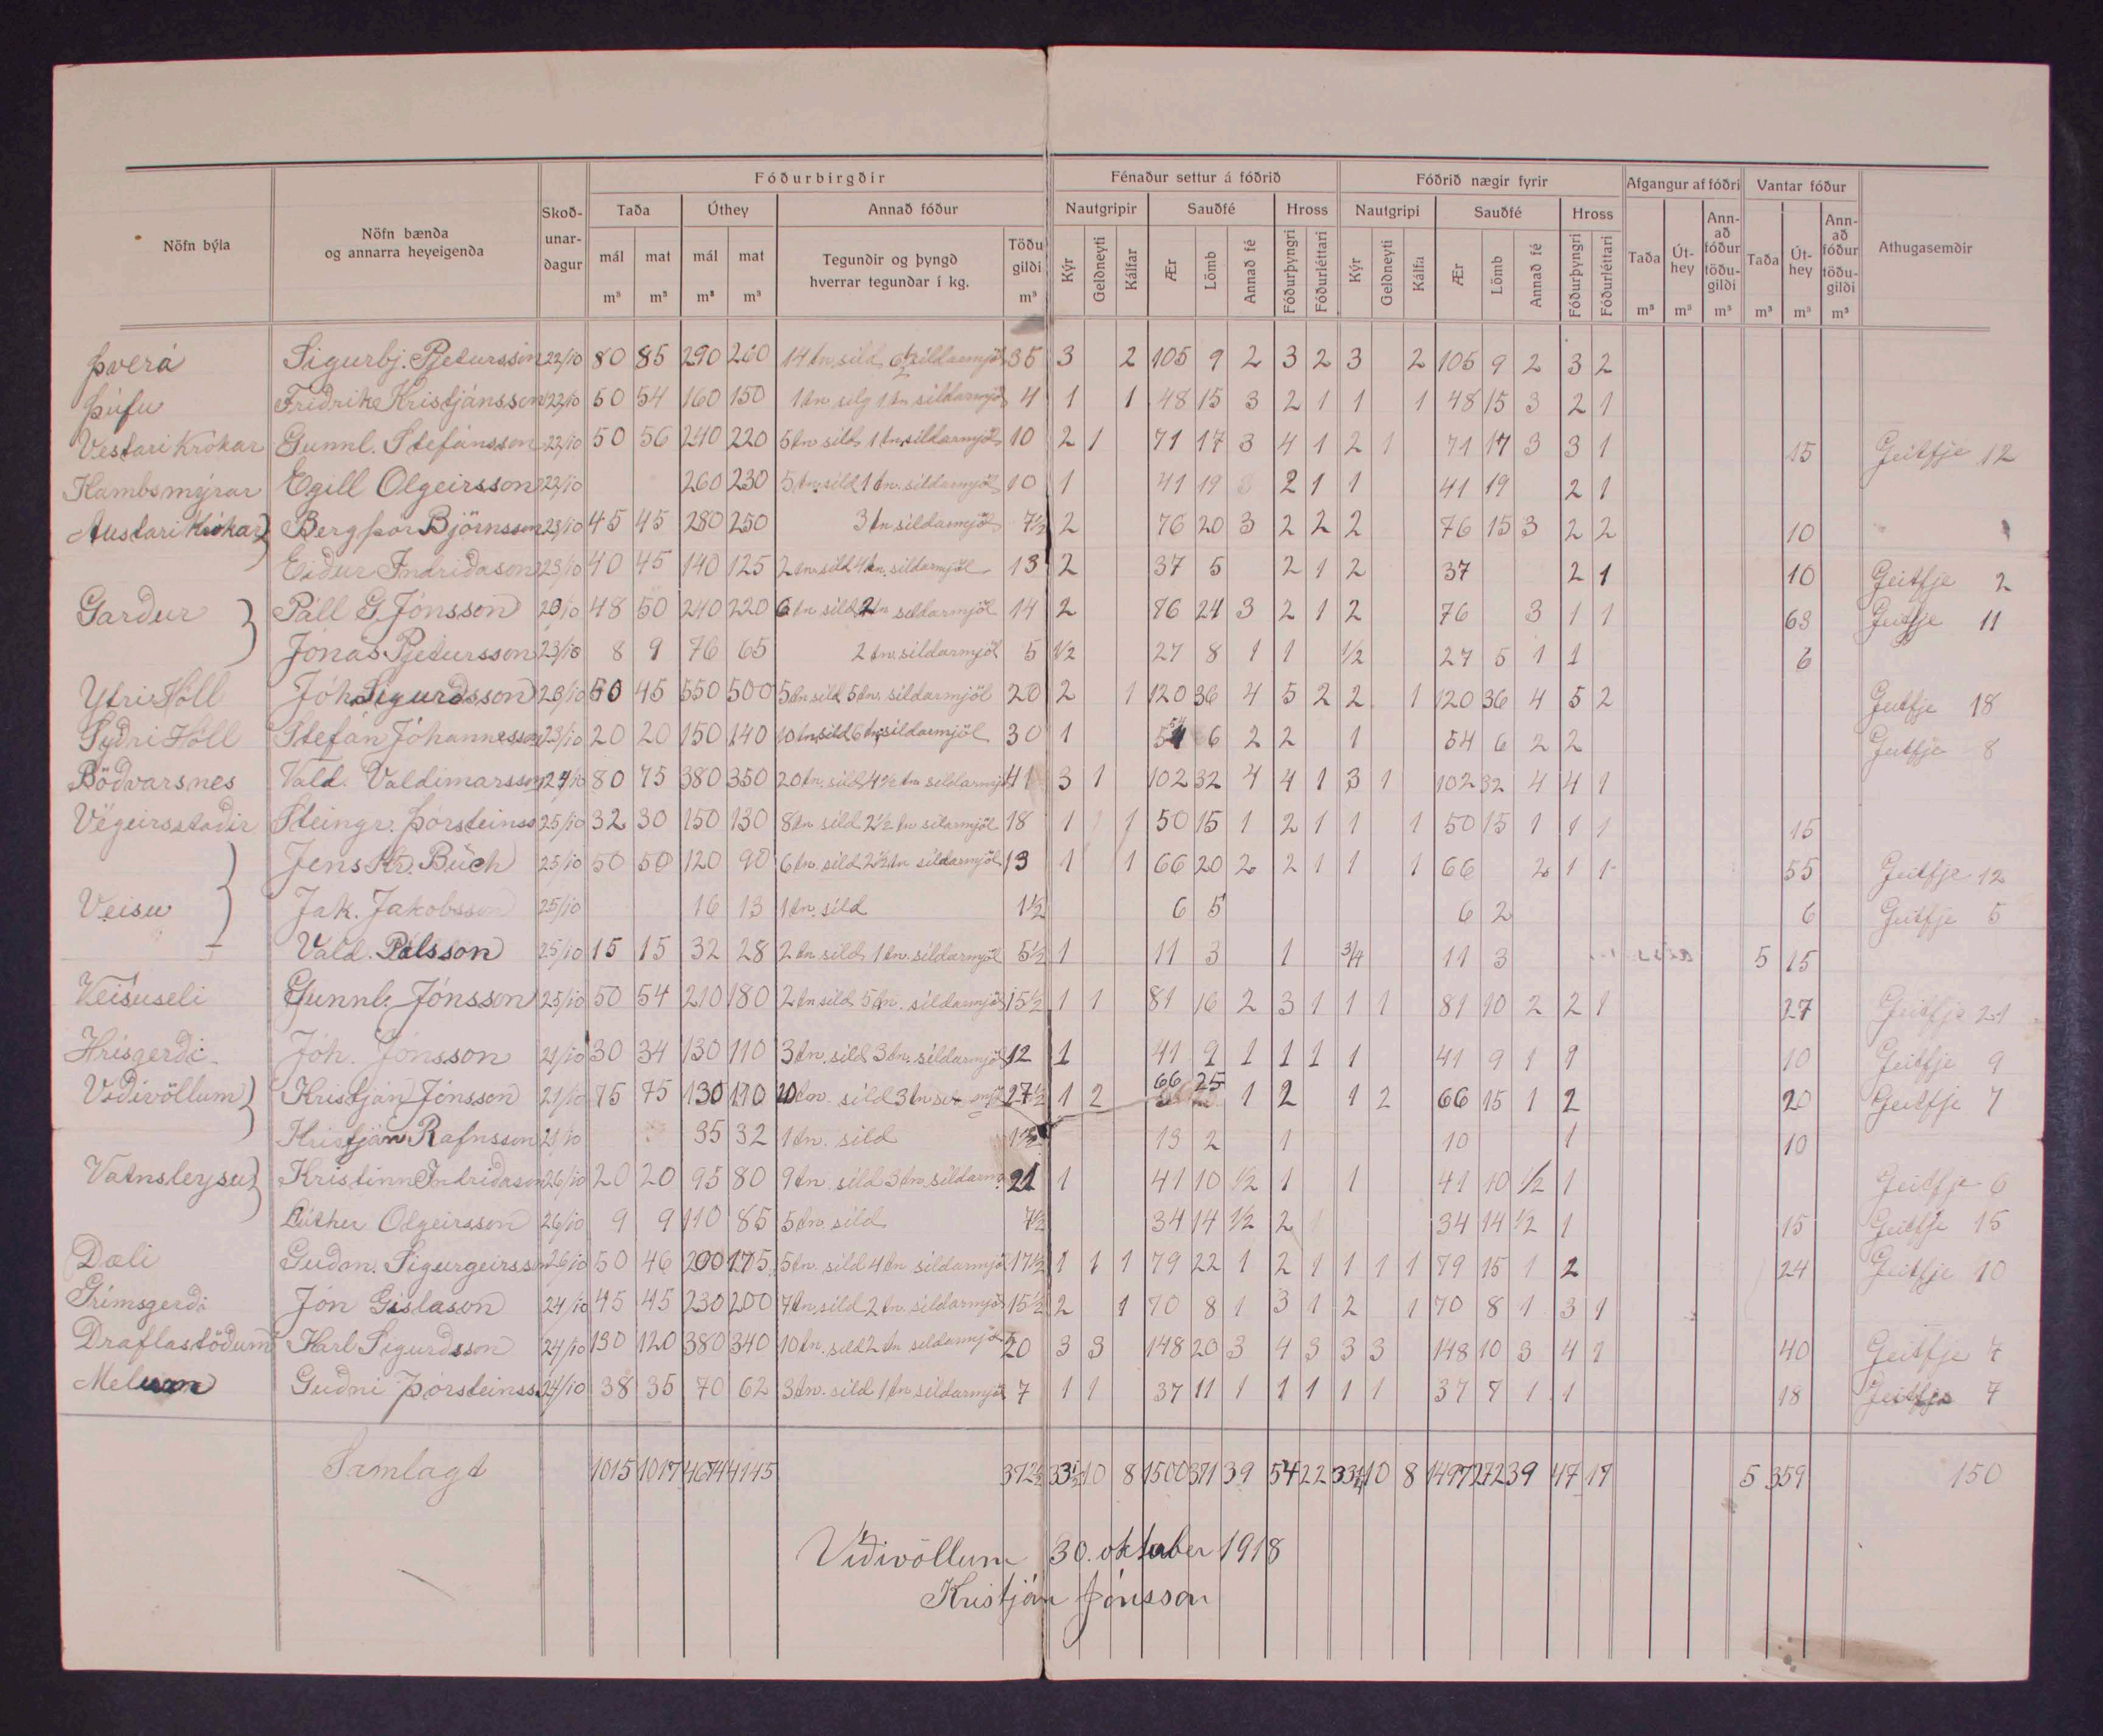 Fóðurbirgðir Fénaður settur á fóðrið Fóðrið nægir fyrir Afgangur af fóðri Vantar fóður
Nöfn býla Nöfn bænda og annarra heyeigenda Skoð-unar-dagur Taða Úthey Annað fóður Nautgripir Sauðfé Hross Nautgripi Sauðfé Hross Athugasemdir
mál m³ mat m³ mál m³ mat m³ Tegundir og þyngd hverrar tegundar í kg. Töðu gildi m³ Kýr Geldneyti Kálfar Ær Lömb Annað fé Fóðurþyngri Fóðurléttari Kýr Geldneyti Kálfa Ær Lömb Annað fé Fóðurþyngri Fóðurléttari Taða m³ Út-hey m³ Ann-að fóður töðu-gildi m³ Taða m³ Út-hey m³ Ann-að fóður töðu-gildi m³
Þverá Sigurbj. Pjetursson 22/10 80 85 290 260 14 tn. síld, 6½ síldarmjöl 35 3 2 105 9 2 3 2 3 2 105 9 2 3 2
Þúfu Friðrik Kristjánsson 22/10 50 54 160 150 1 tn. 1 tn síldarmjöl 4 1 1 48 15 3 2 1 1 1 48 15 3 2 1
Vestari Krókar Gunnl. Stefánsson 22/10 50 56 240 220 5 tn síld 1 tn. síldarmjöl 10 2 1 71 17 3 4 1 2 1 71 17 3 3 1 15 Geitfje 12
Kambsmýrar Egill Olgeirsson 22/10 260 230 5 tn. síld 1 tn. síldarmjöl 10 1 41 19 2 1 1 41 19 2 1
Austari Krókar Bergþór Björnsson 23/10 45 45 280 250 3 tn síldarmjöl 7½ 2 76 20 3 2 2 2 76 15 3 2 2 10
Eiður Indriðason 23/10 40 45 140 125 2 tn. síld 4 tn. síldarmjöl 13 2 37 5 2 1 2 37 2 1 10 Geitfje 2
Garður Páll G. Jónsson 23/10 48 50 240 220 6 tn síld 2 tn síldarmjöl 14 2 76 24 3 2 1 2 76 3 1 1 63 Geitfje 11
Jónas Pjetursson 23/10 8 9 76 65 2 tn. síldarmjöl 5 ½ 27 8 1 1 ½ 27 5 1 1 6
Ytri Hóll Jóh Sigurðsson 23/10 50 45 550 500 5 tn síld 5 tn. síldarmjöl 20 2 1 120 36 4 5 2 2 1 120 36 4 5 2 Geitfje 18
Syðri Hóll Stefán Jóhannesson 23/10 20 20 150 140 10 tn. síld 6 tn. síldarmjöl 30 1 54 6 2 2 1 54 6 2 2 Geitfje 8
Böðvarsnes Vald. Valdimarsson 24/10 80 75 380 350 20 tn. síld 4½ tn síldarmjöl 41 3 1 102 32 4 4 1 3 1 102 32 4 4 1
Végeirsstaðir Steingr. Þorsteinss 25/10 32 30 150 130 8 tn síld 2½ tn sílarmjöl 18 1 1 50 15 1 2 1 1 1 50 15 1 1 1 15
Jens Kr. Búch 25/10 50 50 120 90 6 tn. síld 2½ tn síldarmjöl 13 1 1 66 20 2 2 1 1 1 66 2 1 1 55 Geitfje 12
Veisu Jak. Jakobsson 25/10 16 13 1 tn. síld 1½ 6 5 6 2 6 Geitfje 5
Vald. Pálsson 25/10 15 15 32 28 2 tn síld 1 tn. síldarmjöl 5½ 1 11 3 1 3/4 11 3 5 15
Veisuseli Gunnl. Jónsson 25/10 50 54 210 180 2 tn síld 5 tn. síldarmjöl 15½ 1 1 81 16 2 3 1 1 1 81 10 2 2 1 27 Geitfje 21
Hrísgerði Jóh. Jónsson 21/10 30 34 130 110 3 tn. síld 3 tn. síldarmjöl 12 1 41 9 1 1 1 1 41 9 1 1 10 Geitfje 9
Víðivöllum Kristján Jónsson 21/10 75 75 130 110 20 tn. síld 3 tn mjöl 27½ 1 2 66 25 1 2 1 2 66 15 1 2 20 Geitfje 7
Kristján Rafnsson 21/10 35 32 1 tn. síld 1½ 13 2 1 10 1 10
Vatnsleysu Kristinn Indriðason 26/10 20 20 95 80 9 tn. síld 3 tn. síldarm. 21 1 41 10 ½ 1 1 41 10 ½ 1 Geitfje 6
Lúther Olgeirsson 26/10 9 9 110 85 5 tn. síld 7½ 34 14 ½ 2 34 14 ½ 1 15 Geitfje 15
Dæli Guðm. Sigurgeirsson 26/10 50 46 200 175 5 tn. síld 4 tn síldarmjöl 17½ 1 1 1 79 22 1 2 1 1 1 1 79 15 1 2 24 Geitfje 10
Grímsgerði Jón Gíslason 24/10 45 45 230 200 7 tn. síld 2 tn. síldarmjöl 15½ 2 1 70 8 1 3 1 2 1 70 8 1 3 1
Draflastöðum Karl Sigurðsson 24/10 130 120 380 340 10 tn. síld 2 tn síldarmjöl 20 3 3 148 20 3 4 3 3 3 148 10 3 4 1 40 Geitfje 7
Melum Guðni Þorsteinss. 24/10 38 35 70 62 3 tn. síld 1 tn síldarmjöl 7 1 1 37 11 1 1 1 1 1 37 8 1 1 18 Geitfje 7
Samlagt 1015 1017 4674 4145 372½ 33½ 10 8 1500 371 39 54 22 33¼ 10 8 1497 272 39 47 19 5 359 150
Víðivöllum 30. oktober 1918
Kristján Jónsson